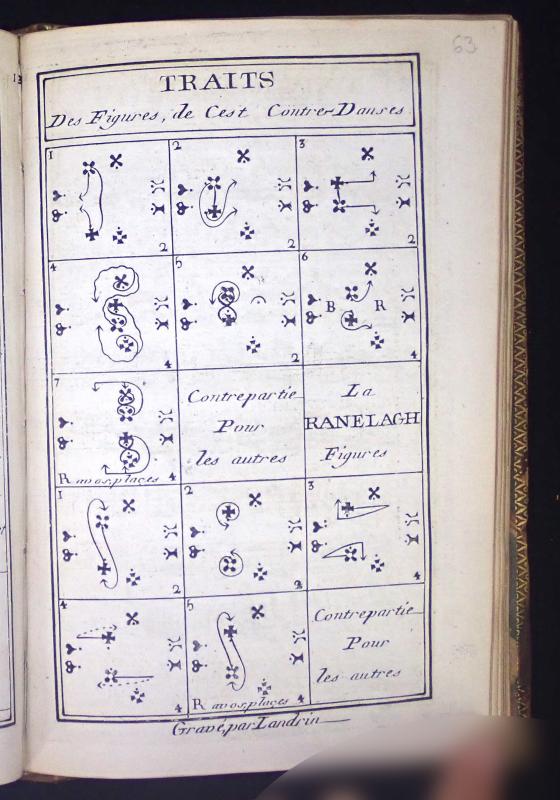 63
TRAITS
Des Figures, de Cest Contre-Danses
1
2
3
2
2
2
4
5
6
B
R
4
2
4
7
Contrepartie
Pour
les autres
La
RANELAGH
Figures
R avos places 4
1
2
3
2
2
4
4
5
Contrepartie
Pour
les autres
4
R avos places 4
Gravé, par Landrin